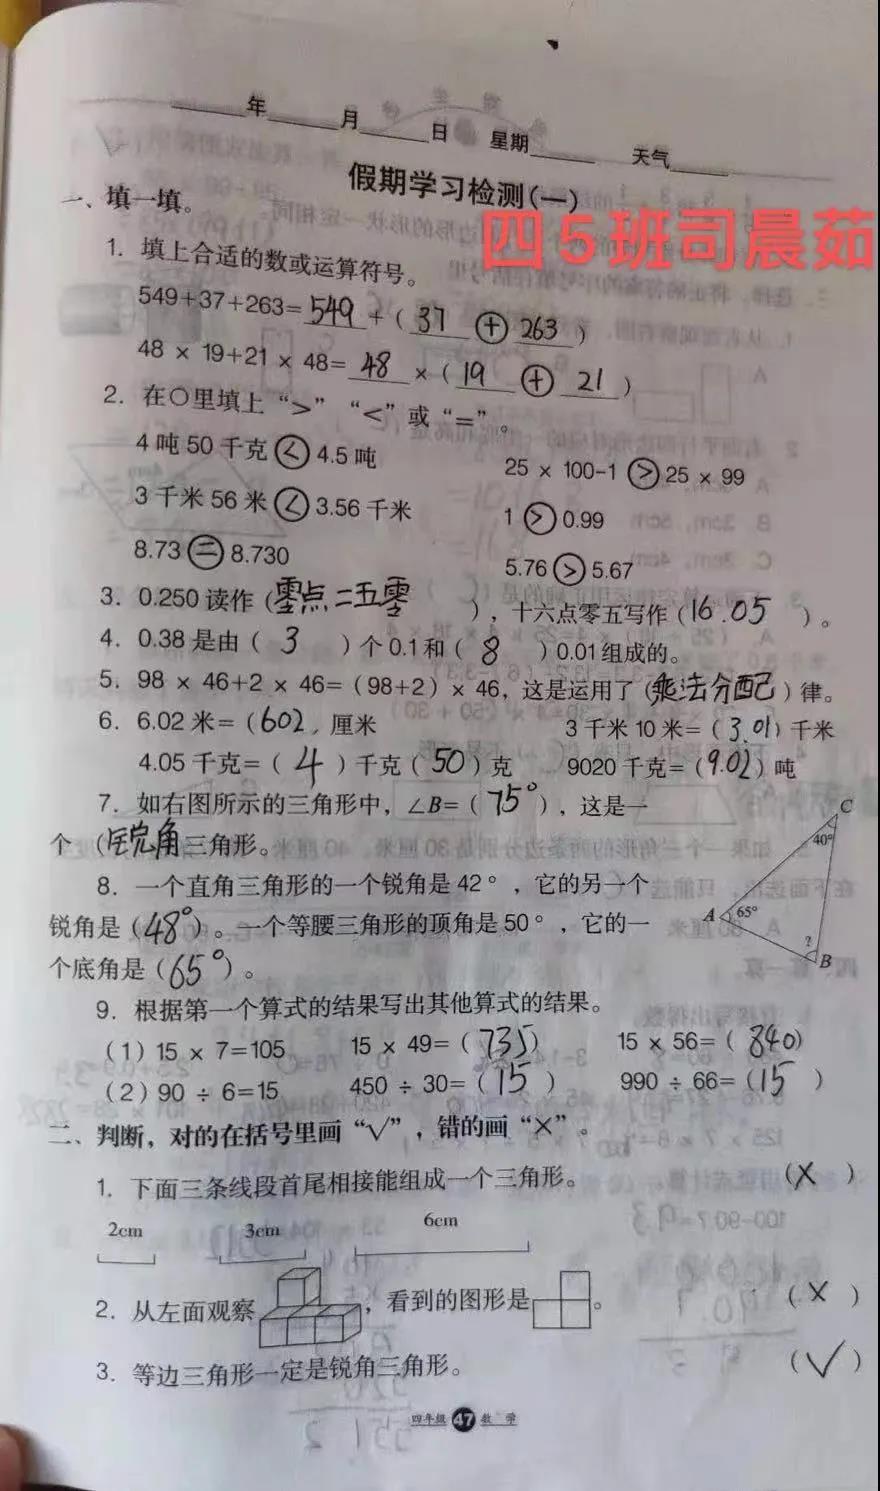 年 月 日 星期 天气
假期学习检测(一)
四5班司晨茹
一、填一填。
1. 填上合适的数或运算符号。
549+37+263=549+(37 + 263)
48 × 19+21 × 48=48×(19 + 21)
2. 在○里填上“>”“<”或“=”。
4吨50千克 < 4.5吨 25 × 100-1 > 25 × 99
3千米56米 < 3.56千米 1 > 0.99
8.73 = 8.730 5.76 > 5.67
3. 0.250读作(零点二五零),十六点零五写作(16.05)。
4. 0.38是由(3)个0.1和(8)0.01组成的。
5. 98 × 46+2 × 46=(98+2)× 46,这是运用了(乘法分配)律。
6. 6.02米=(602)厘米 3千米10米=(3.01)千米
4.05千克=(4)千克(50)克 9020千克=(9.02)吨
7. 如右图所示的三角形中,∠B=(75°),这是一
个(锐角)三角形。
C
40°
A 65°
?
B
8. 一个直角三角形的一个锐角是42°,它的另一个
锐角是(48°)。一个等腰三角形的顶角是50°,它的一
个底角是(65°)。
9. 根据第一个算式的结果写出其他算式的结果。
(1)15 × 7=105 15 × 49=(735) 15 × 56=(840)
(2)90 ÷ 6=15 450 ÷ 30=(15) 990 ÷ 66=(15)
二、判断,对的在括号里画“√”,错的画“×”。
1. 下面三条线段首尾相接能组成一个三角形。 (×)
2cm 3cm 6cm
2. 从左面观察,看到的图形是。 (×)
3. 等边三角形一定是锐角三角形。 (√)
四年级 47 数学